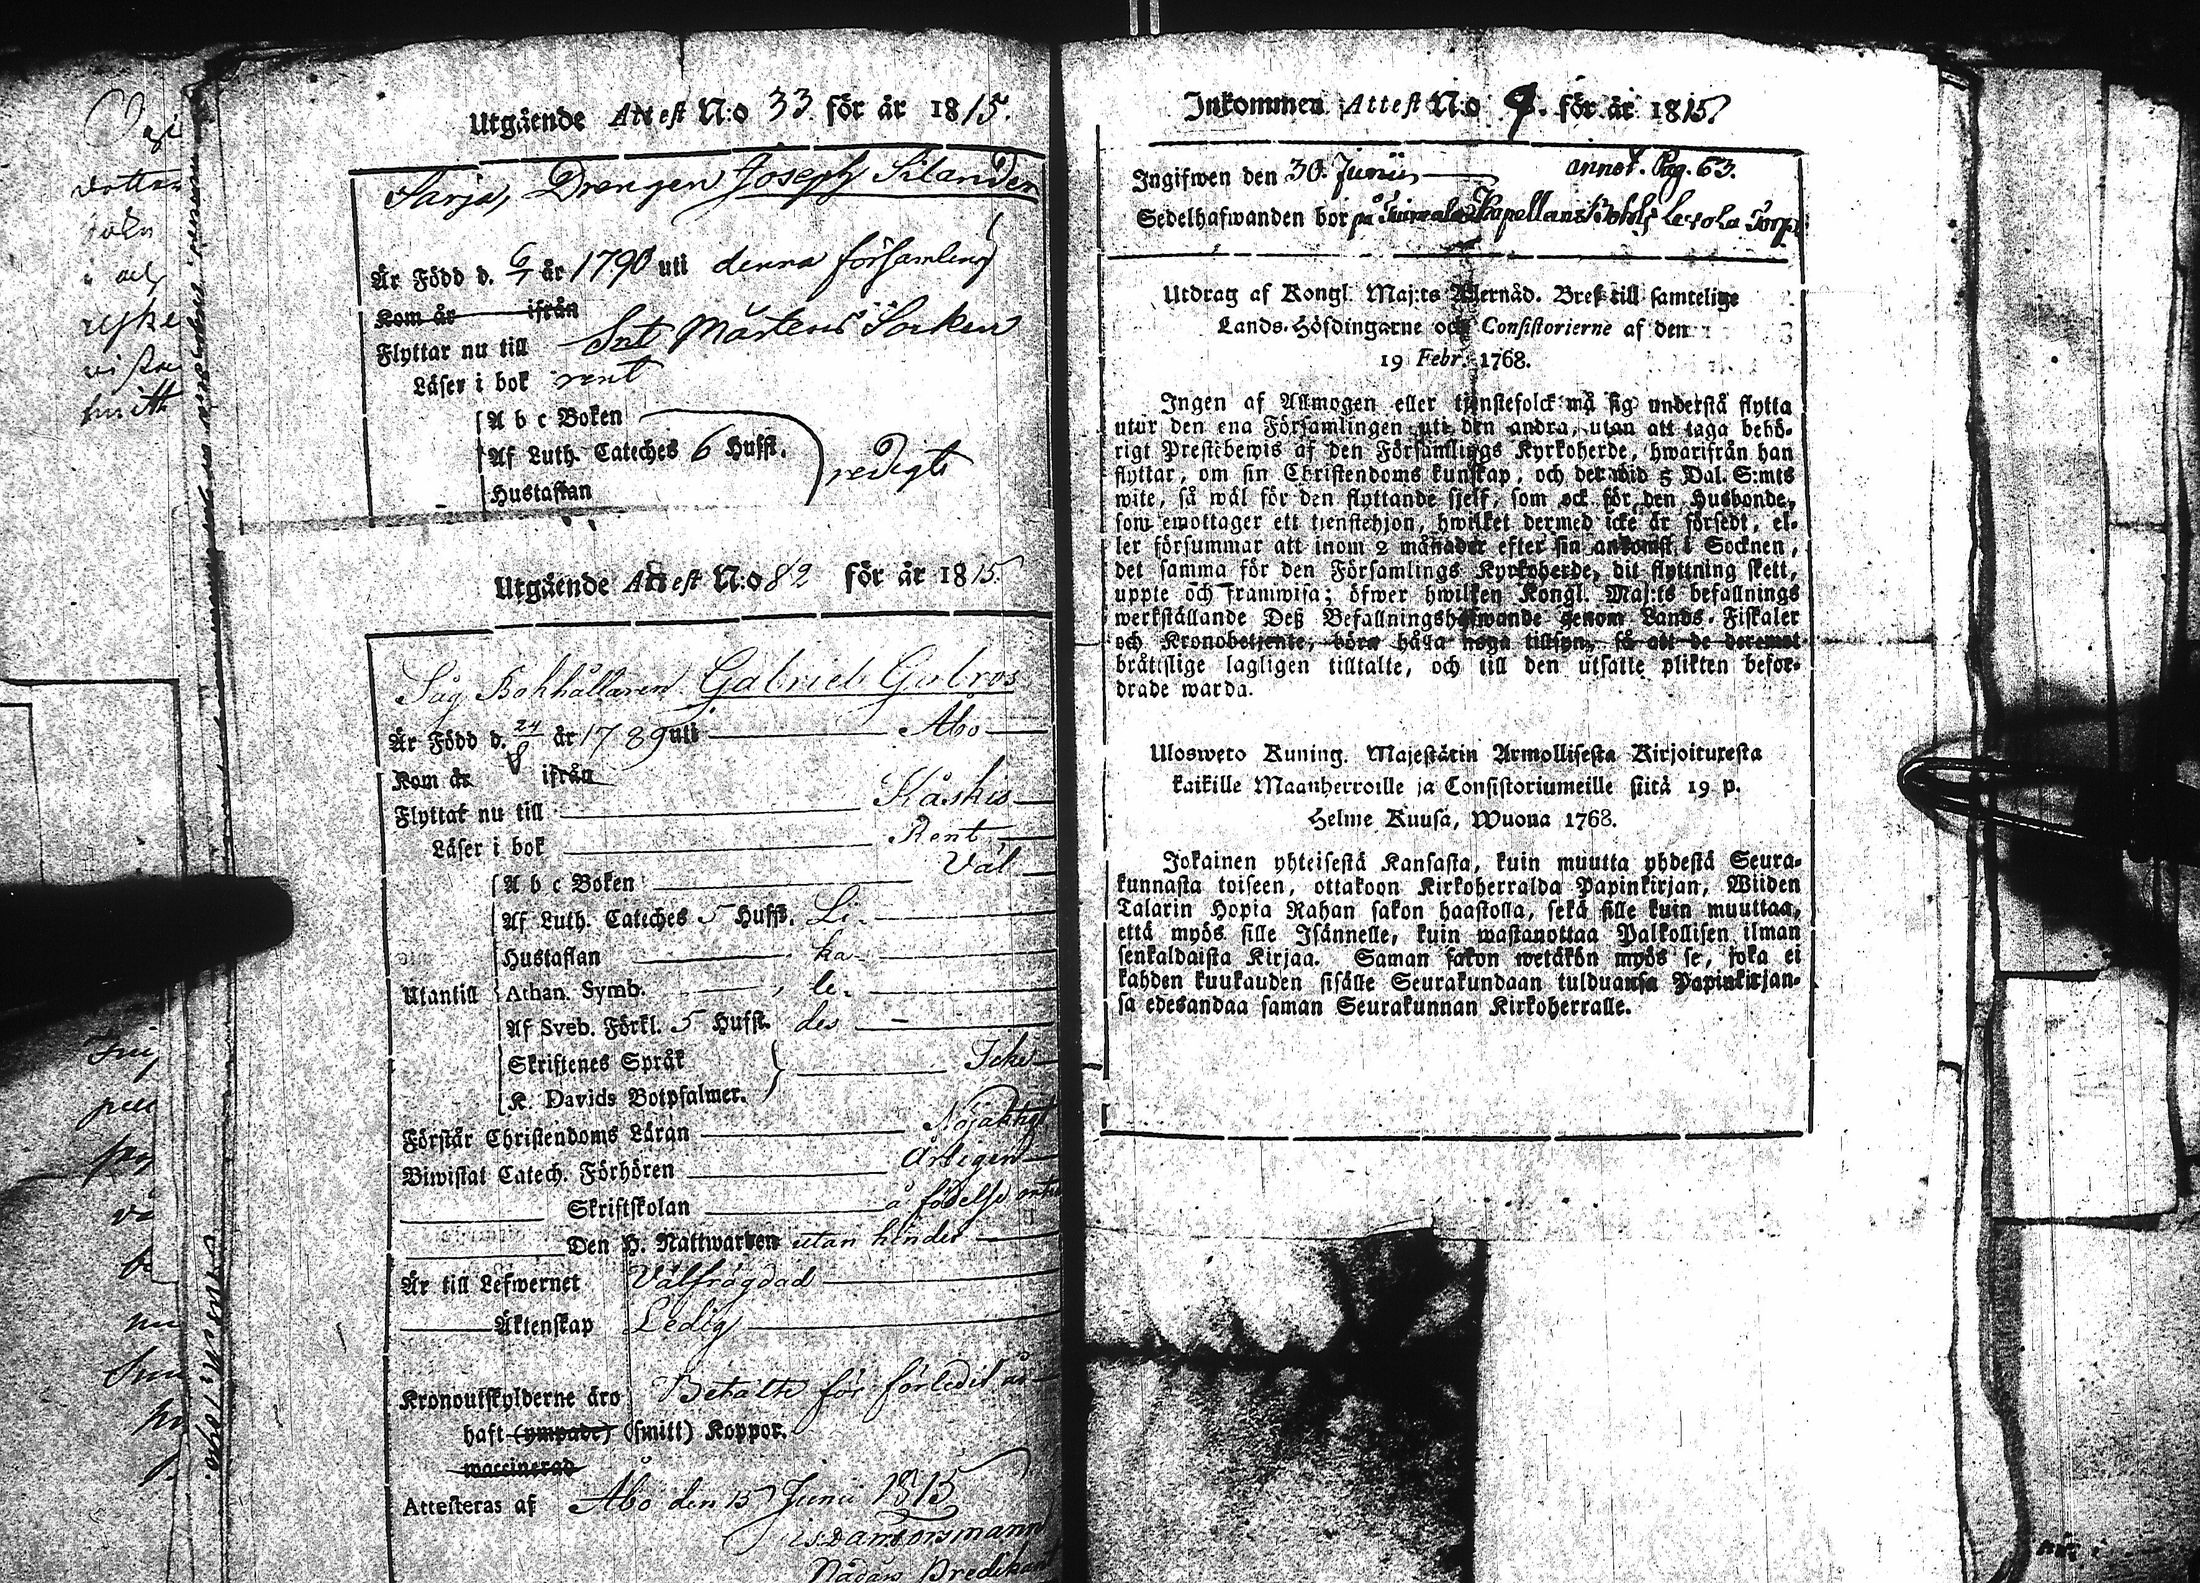 Utgående Attest N:o 33 för år 1815.
Sarja, Drengen Joseph Silander
Är Född d. 6/7 år 1790 uti denna församling
Kom år ifrån
Flyttar nu till Snt Mårtens Socken
Läser i bok rent
A b c Boken
Af Luth. Cateches 6 Hufst.
redigt
Hustaflan
Utgående Attest N:o 82 för år 1815.
Såg Bokhållaren Gabriel
Är Född d. 24/8 år 1789 uti Åbo
Kom år ifrån
Flyttat nu till Kåskis
Läser i bok Rent
Väl
A b c Boken
Af Luth. Cateches 5 Hufst. Li-
Hustaflan ka-
Utantill Athan. Symb. le-
Af Sveb. Förkl. 5 Hufst. des
Skriftenes Språk
Icke
K. Davids Botpsalmer.
Förstår Christendoms Läran Nöjaktigt
Biwistat Catech. Förhören Årligen
Skriftskolan å födelse
Den H. Nattwarden utan hinder
Är till Lefwernet Välfrägdad
Äktenskap Ledig
Kronoutskylderne äro Betalte för förledit år
haft (ympade) (smitt) Koppor.
waccinerad
Attesteras af Åbo den 15 Junii 1815
Inkommen Attest N:o 9. för år 1815
Ingifwen den 30. Junii annot. Pag. 63.
Sedelhafwanden bor på Kapellans Torp
Utdrag af Kongl. Maj:ts Allernåd. Bref till samtelige
Lands-Höfdingarne och Consistorierne af den
19 Febr. 1768.
Ingen af Allmogen eller tjenstefolck må sig understå flytta
utur den ena Församlingen uti den andra, utan att taga behö-
rigt Prestebewis af den Församlings Kyrkoherde, hwarifrån han
flyttar, om sin Christendoms kunskap, och det wid 5 Dal. S:mts
wite, så wäl för den flyttande sjelf, som ock för den Husbonde,
som emottager ett tjenstehjon, hwilket dermed icke är försedt, el-
ler försummar att inom 2 månader efter sin ankomst i Socknen,
det samma för den Församlings Kyrkoherde, dit flyttning skett,
uppte och framwisa; öfwer hwilken Kongl. Maj:ts befallnings
werkställande Deß Befallningshafwande genom Lands-Fiskaler
och Kronobetjente, böra hålla noga tillsyn, så att de deremot
bråttslige lagligen tilltalte, och till den utsatte plikten befor-
drade warda.
Ulosweto Kuning. Majestätin Armollisesta Kirjoituxesta
kaikille Maanherroille ja Consistoriumeille siitä 19 p.
Helme Kuusa, Wuona 1768.
Jokainen yhteisestä Kansasta, kuin muutta yhdestä Seura-
kunnasta toiseen, ottakoon Kirkoherralda Papinkirjan, Wiiden
Talarin Hopia Rahan sakon haastolla, sekä sille kuin muuttaa,
että myös sille Isännelle, kuin wastanottaa Palkollisen ilman
senkaldaista Kirjaa. Saman sakon wetäkön myös se, joka ei
kahden kuukauden sisälle Seurakundaan tulduansa Papinkirjan-
sa edesandaa saman Seurakunnan Kirkoherralle.